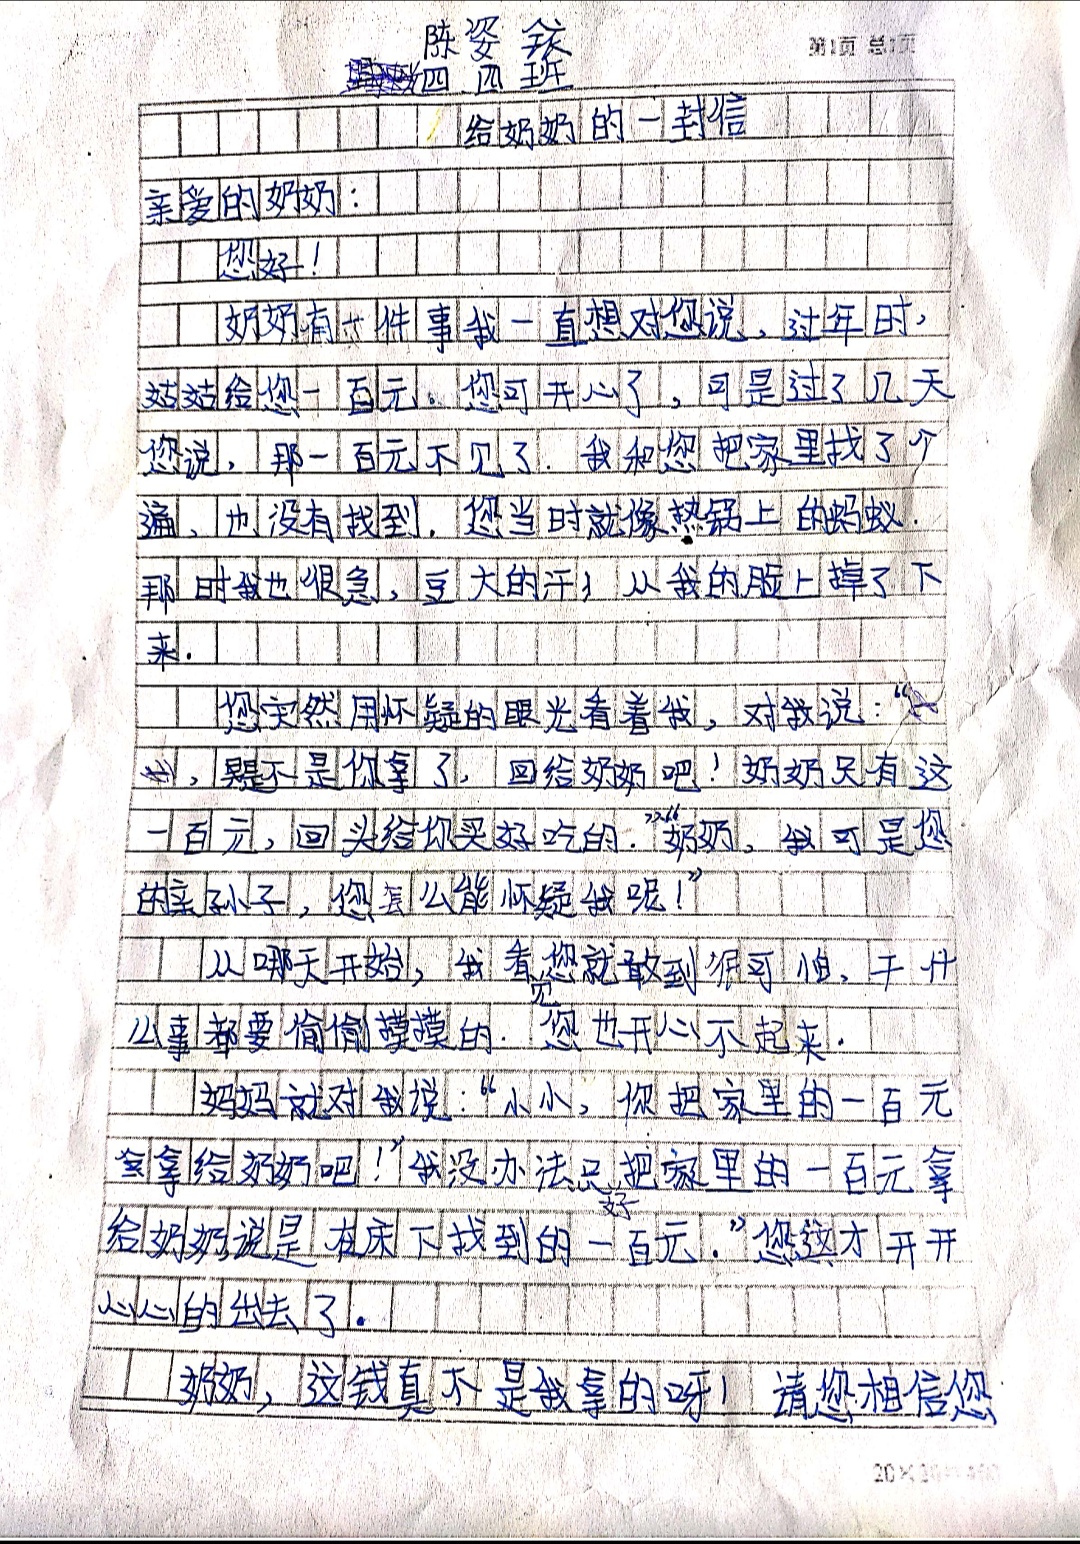 陈姿铱
第1页 总1页
四四班
给奶奶的一封信
亲爱的奶奶：
您好！
奶奶有一件事我一直想对您说，过年时，
姑姑给您一百元。您可开心了，可是过了几天
您说，那一百元不见了。我和您把家里找了个
遍，也没有找到。您当时就像热锅上的蚂蚁。
那时我也很急，豆大的汗从我的脸上掉了下
来。
您突然用怀疑的眼光看着我，对我说：“
，是不是你拿了，回给奶奶吧！奶奶只有这
一百元，回头给你买好吃的。”“奶奶，我可是您
的亲孙子，您怎么能怀疑我呢！”
从哪天开始，我看见您就敢到很可怕，干什
么事都要偷偷摸摸的。您也开心不起来。
妈妈就对我说：“小小，你把家里的一百元
拿给奶奶吧！”我没办法只好把家里的一百元拿
给奶奶说是在床下找到的一百元。”您这才开开
心心的出去了。
奶奶，这钱真不是我拿的呀！请您相信您
20×20=400